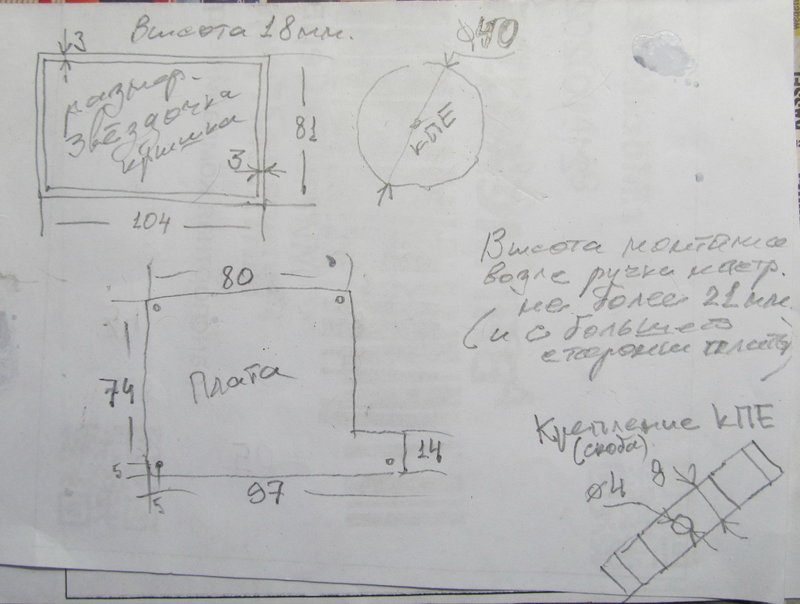 Высота 18мм.
3
размер.
Звёздочка
крышка
3
81
104
ø40
КПЕ
80
Плата
74
14
5
5
97
Высота монтажа
возле ручки настр.
не более 21мм.
(и с большего
стороны платы)
Крепление КПЕ
(скоба)
ø4
9